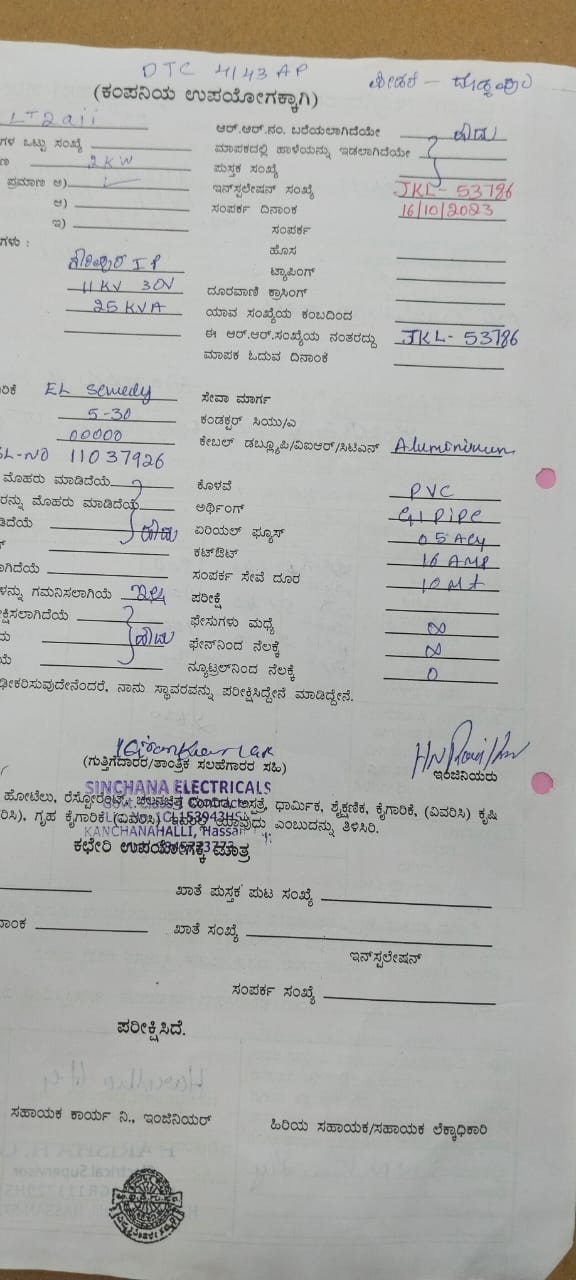 DTC 4/43 AP
(ಕಂಪನಿಯ ಉಪಯೋಗಕ್ಕಾಗಿ)
LT2aii
ಆರ್.ಆರ್.ನಂ. ಬರೆಯಲಾಗಿದೆಯೇ
ಗಳ ಒಟ್ಟು ಸಂಖ್ಯೆ
ಮಾಪಕದಲ್ಲಿ ಹಾಳೆಯನ್ನು ಇಡಲಾಗಿದೆಯೇ
ಣ 2KW ಪುಸ್ತಕ ಸಂಖ್ಯೆ
ಪ್ರಮಾಣ ಅ) ಇನ್‌ಸ್ಟಲೇಷನ್ ಸಂಖ್ಯೆ JKL-53786
ಆ) ಸಂಪರ್ಕ ದಿನಾಂಕ 16/10/2023
ಇ) ಸಂಪರ್ಕ
ಗಳು : ಹೊಸ
IP ಟ್ಯಾಪಿಂಗ್
11KV ದೂರವಾಣಿ ಕ್ರಾಸಿಂಗ್
25KVA ಯಾವ ಸಂಖ್ಯೆಯ ಕಂಬದಿಂದ
ಈ ಆರ್.ಆರ್.ಸಂಖ್ಯೆಯ ನಂತರದ್ದು JKL-53786
ಮಾಪಕ ಓದುವ ದಿನಾಂಕ
ರಿಕೆ EL ಸೇವಾ ಮಾರ್ಗ
5-30 ಕಂಡಕ್ಟರ್ ಸಿಯು/ಎ
00000 ಕೇಬಲ್ ಡಬ್ಲ್ಯೂಪಿ/ವಿಐಆರ್/ಸಿಟಿಎಸ್ Aluminium
SL-NO 11037926
ಮೊಹರು ಮಾಡಿದೆಯೆ ಕೊಳವೆ PVC
ರನ್ನು ಮೊಹರು ಮಾಡಿದೆಯೆ ಅರ್ಥಿಂಗ್ GI PIPE
ಡಿದೆಯೆ ಏರಿಯಲ್ ಫ್ಯೂಸ್
ಕಟ್‌ಔಟ್ 16 AMP
ಾಗಿದೆಯೆ ಸಂಪರ್ಕ ಸೇವೆ ದೂರ 10 Mt
ಳನ್ನು ಗಮನಿಸಲಾಗಿಯೆ ಪರೀಕ್ಷೆ
ಕ್ಷಿಸಲಾಗಿದೆಯೆ ಫೇಸುಗಳು ಮಧ್ಯೆ ∞
ಫೇಸ್‌ನಿಂದ ನೆಲಕ್ಕೆ ∞
ಯೆ ನ್ಯೂಟ್ರಲ್‌ನಿಂದ ನೆಲಕ್ಕೆ 0
ಢೀಕರಿಸುವುದೇನೆಂದರೆ, ನಾನು ಸ್ಥಾವರವನ್ನು ಪರೀಕ್ಷಿಸಿದ್ದೇನೆ ಮಾಡಿದ್ದೇನೆ.
(ಗುತ್ತಿಗೆದಾರರ/ತಾಂತ್ರಿಕ ಸಲಹೆಗಾರರ ಸಹಿ)
ಇಂಜಿನಿಯರು
SINCHANA ELECTRICALS
ಹೋಟೆಲು, ರೆಸ್ಟೋರೆಂಟ್, ಚಲನಚಿತ್ರ ಮಂದಿರ, ಆಸ್ಪತ್ರೆ, ಧಾರ್ಮಿಕ, ಶೈಕ್ಷಣಿಕ, ಕೈಗಾರಿಕೆ, (ವಿವರಿಸಿ) ಕೃಷಿ
ರಿಸಿ), ಗೃಹ ಕೈಗಾರಿಕೆ (ವಿವರಿಸಿ) ಇವುದು ಎಂಬುದನ್ನು ತಿಳಿಸಿರಿ.
KANCHANAHALLI, Hassan
ಕಛೇರಿ ಉಪಯೋಗಕ್ಕೆ ಮಾತ್ರ
ಖಾತೆ ಪುಸ್ತಕ ಪುಟ ಸಂಖ್ಯೆ
ನಾಂಕ ಖಾತೆ ಸಂಖ್ಯೆ
ಇನ್‌ಸ್ಟಲೇಷನ್
ಸಂಪರ್ಕ ಸಂಖ್ಯೆ
ಪರೀಕ್ಷಿಸಿದೆ.
ಸಹಾಯಕ ಕಾರ್ಯ ನಿ., ಇಂಜಿನಿಯರ್ ಹಿರಿಯ ಸಹಾಯಕ/ಸಹಾಯಕ ಲೆಕ್ಕಾಧಿಕಾರಿ